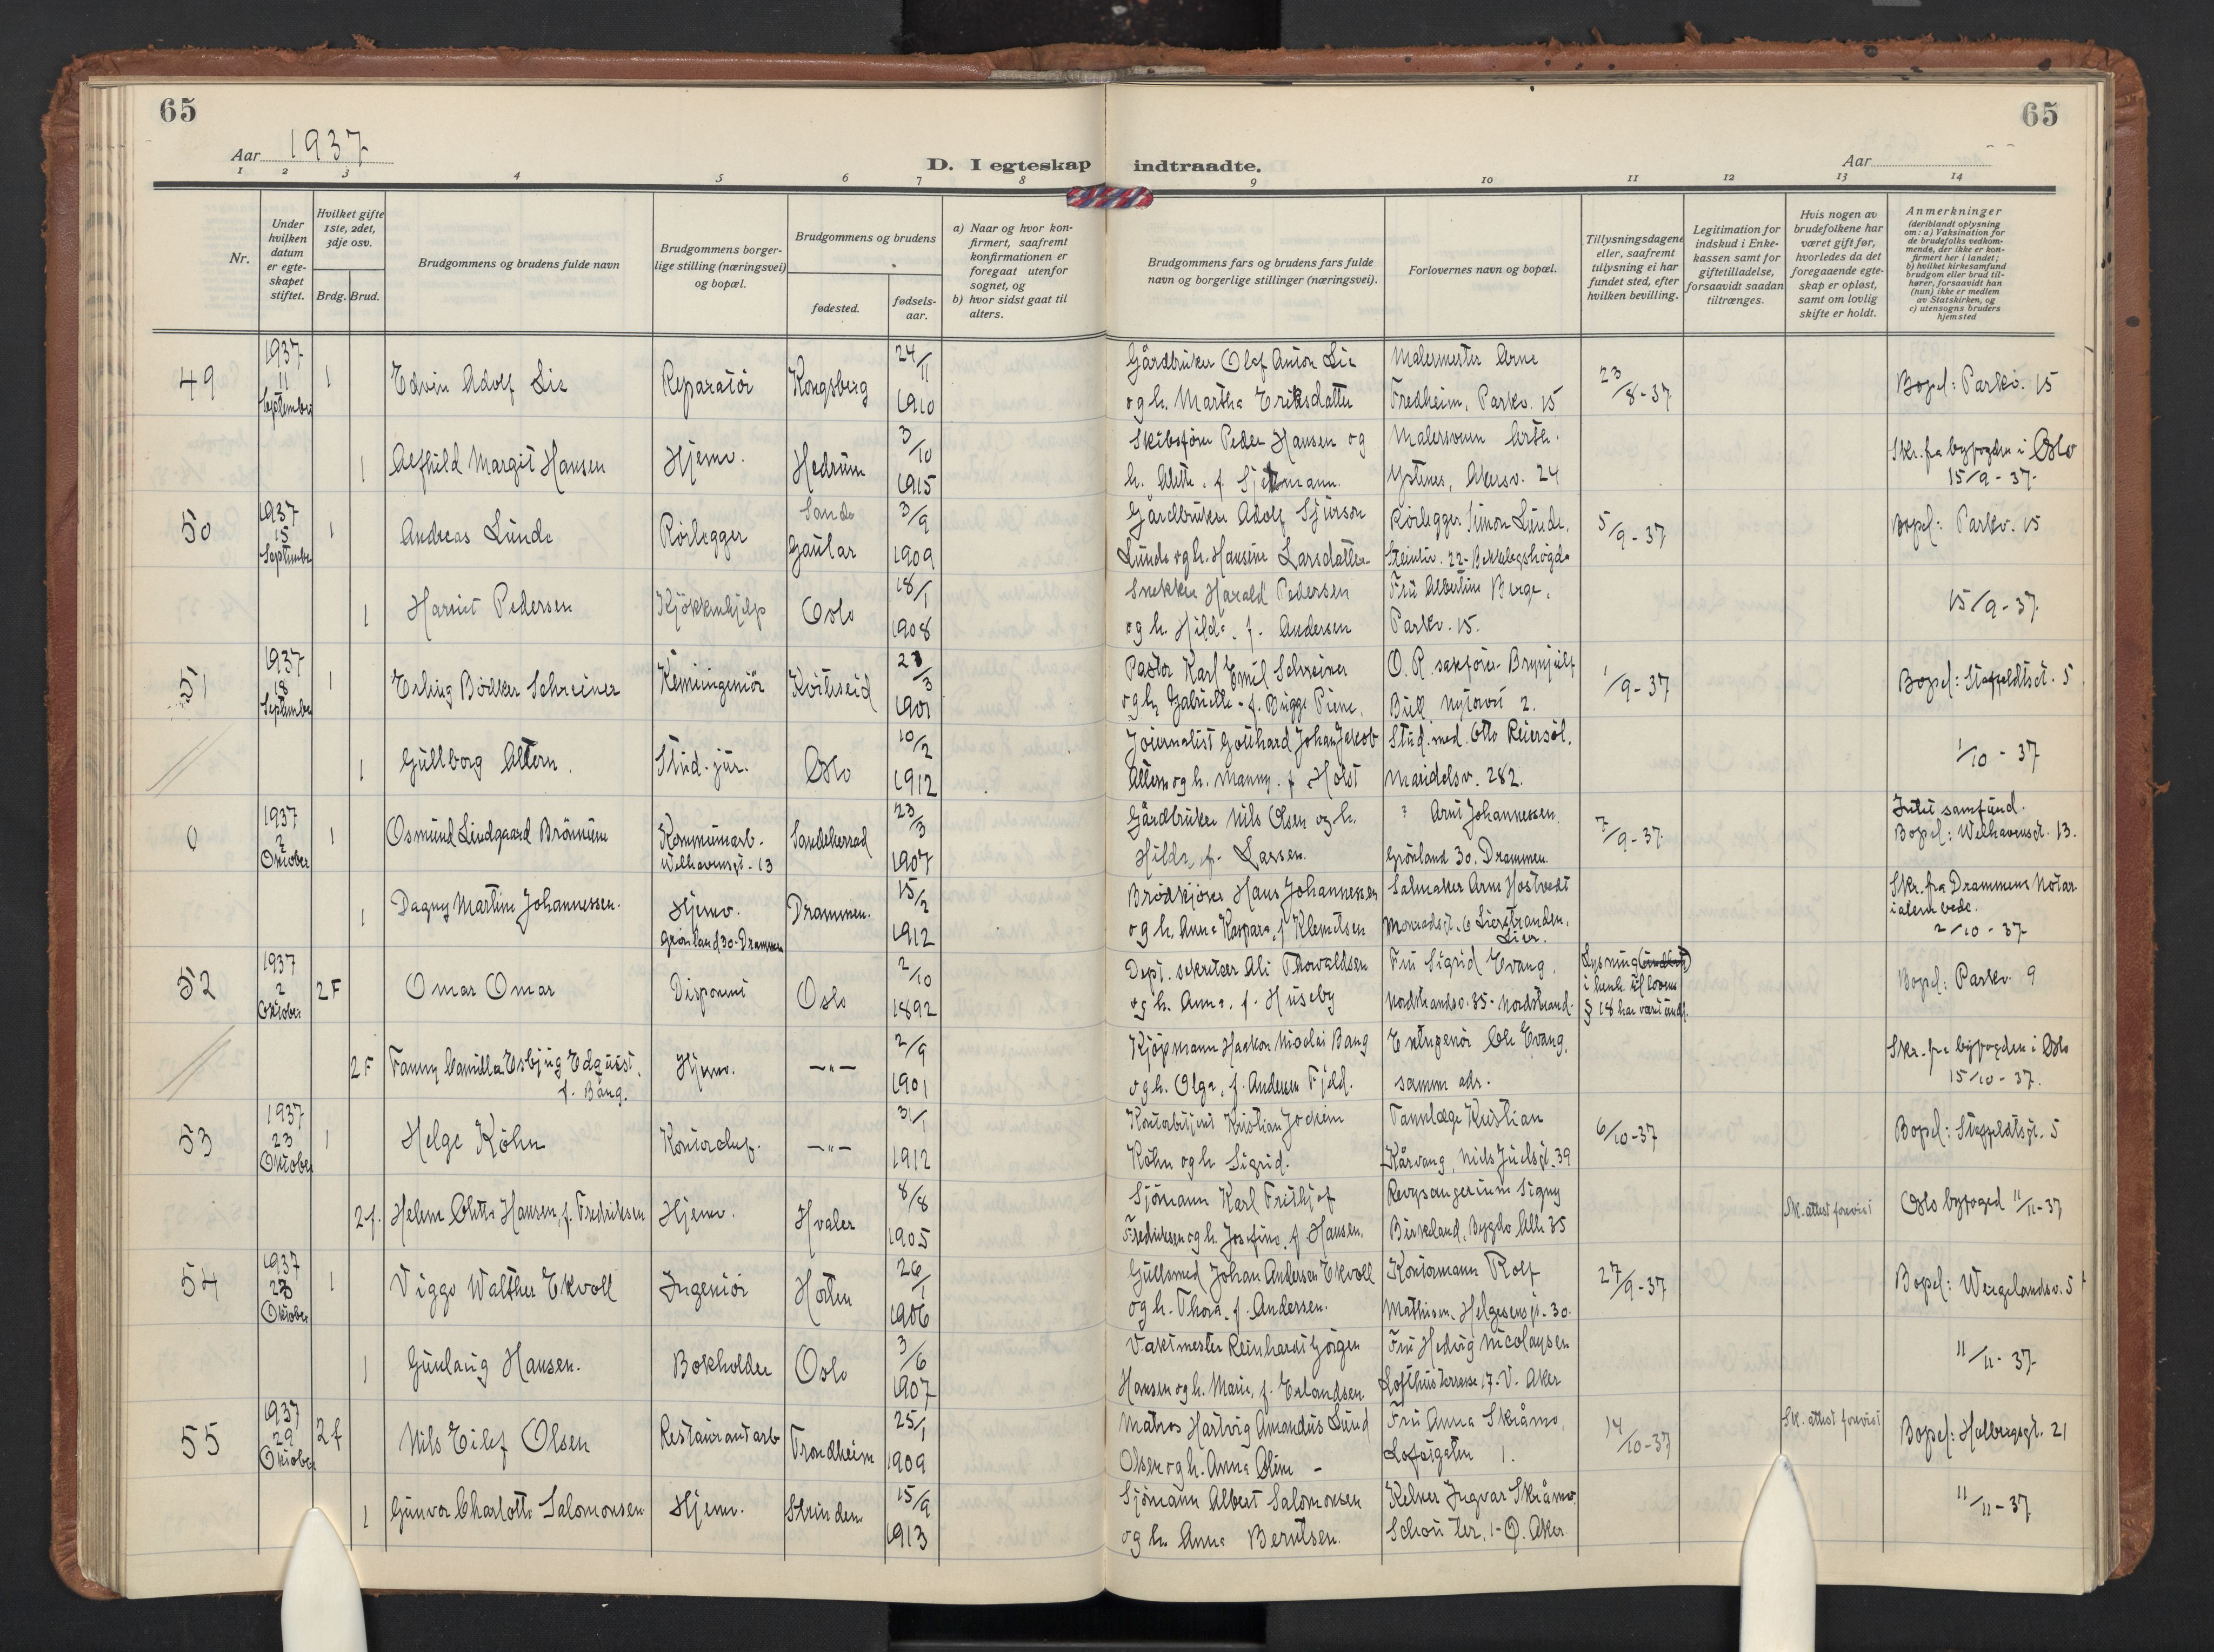 65
65
Aar 1937
D. I egteskap indtraadte.
Aar
1 2 3 4 5 6 7 8 9 10 11 12 13 14
Nr.
Under hvilken datum er egteskapet stiftet.
Hvilket gifte 1ste, 2det, 3dje osv.
Brdg. Brud.
Brudgommens og brudens fulde navn
Brudgommens borgerlige stilling (næringsvei) og bopæl.
Brudgommens og brudens
fødested.
fødselsaar.
a) Naar og hvor konfirmert, saafremt konfirmationen er foregaat utenfor sognet, og
b) hvor sidst gaat til alters.
Brudgommens fars og brudens fars fulde navn og borgerlige stillinger (næringsvei).
Forlovernes navn og bopæl.
Tillysningsdagene eller, saafremt tillysning ei har fundet sted, efter hvilken bevilling.
Legitimation for indskud i Enkekassen samt for giftetilladelse, forsaavidt saadan tiltrænges.
Hvis nogen av brudefolkene har været gift før, hvorledes da det foregaaende egteskap er opløst, samt om lovlig skifte er holdt.
Anmerkninger
(deriblandt oplysning om: a) Vaksination for de brudefolks vedkommende, der ikke er konfirmert her i landet;
b) hvilket kirkesamfund brudgom eller brud tilhører, forsaavidt han (hun) ikke er medlem av Statskirken, og
c) utensogns bruders hjemsted
49 1937 11 September 1 Edvin Adolf Lie Reparatør Kongsberg 24/11 1910 Gårdbruker Olaf Anton Lie og h. Martha Eriksdatter Malermester Arne Fredheim, Parkv. 15 23/8-37 Bopel: Parkv. 15
1 Alfhild Margit Hansen Hjemv. Hedrum 3/10 1915 Skibsfører Peder Hansen og h. Alette, f. Malersvenn Arth. Ystenes, Akersv. 24 Skr. fra byfogden i Oslo 15/9-37.
50 1937 15 September 1 Andreas Lunde Rørlegger Sande Gaular 3/9 1909 Gårdbruker Adolf Sjurson Lunde og h. Hansine Larsdatter Rørlegger Simon Lunde, 22 - Bekkelagshøgda 5/9-37 Bopel: Parkv. 15
1 Harriet Pedersen Kjøkkenhjelp Oslo 18/1 1908 Snekker Harald Pedersen og h. Hilda, f. Andersen Fru Albertine Berge, Parkv. 15. 15/9-37.
51 1937 18 September 1 Erling Bødker Schreiner Kemiingeniør Kviteseid 23/3 1901 Pastor Karl Emil Schreiner og h. Gabrielle - f. Brügge Piene. O. R. sakfører Brynjulf Bull Nytorvi 2. 1/9-37 Bopel: Staffeldtsgt. 5
1 Gullborg Altern. Stud. jur. Oslo 10/2 1912 Journalist Gotthard Johan Jakob Altern og h. Manny. f. Holst Stud. med. Otto Reiersøl, Maridalsv. 282. 1/10-37
0 1937 2 Oktober 1 Osmund Lindgaard Kommunearb. Welhavensgt. 13 Sandeherred 23/3 1907 Gårdbruker Nils Olsen og h. Hilda, f. Larsen. ? Arnt Johannessen Grønland 30. Drammen 7/9-37. samfund. Bopel: Welhavensgt. 13.
1 Dagny Martine Johannessen. Hjemv. Grønland 30 - Drammen Drammen. 15/2 1912 Brødkjører Hans Johannessen og h. Anna Kaspara, f. Klemetsen Salmaker Arne Hostvedt 6 Lierstranden, Lier. Skr. fra Drammens Notarialembede. 2/10-37
52 1937 2 Oktober 2 F Omar Omar Disponent Oslo 2/10 1892 Dept. sekretær Ali Thorvaldsen og h. Anna, f. Huseby Fru Sigrid Evang, Nordstrandsv. 35 - Nordstrand. Lysning i henh. til lovens § 18 har vært undl. Bopel: Parkv. 9
2 F Fanny Camilla Esbjug Edquist, f. Bang. Hjemv. -"- 2/9 1901 Kjøpmann Haakon Nicolai Bang og h. Olga, f. Andersen Fjeld. Entreprenør Ole Evang, samme adr. Skr. fra byfogden i Oslo 15/10-37.
53 1937 23 Oktober 1 Helge Köhn Kontorchef. -"- 3/1 1912 Kontorbetjent Kristian Jochim Köhn og h. Sigrid. Tannlæge Kristian Kårvang, Niels Juelsgt. 39 6/10-37 Bopel: Staffeldtsgt. 5
2 f. Helene Hansen, f. Fredriksen Hjemv. Hvaler 8/8 1905 Sjømann Karl Frithjof Fredriksen og h. Josefine, f. Hansen. Revysangerinne Signy Birkeland, Bygdø Allé 35 Sk. attest forevist Oslo byfoged 11/11-37
54 1937 23 Oktober 1 Viggo Walther Ekvoll Ingeniør Horten 26/1 1906 Gullsmed Johan Andersen Ekvoll og h. Thora, f. Andersen. Kontormann Rolf Mathisen, Helgesensgt. 30. 27/9-37 Bopel: Wergelandsv. 5
1 Gunlaug Hansen. Bokholder Oslo 3/6 1907 Vaktmester Reinhardt Jørgen Hansen og h. Marie, f. Erlandsen Fru Hedvig Nicolaysen Lofthusterrasse 17. V. Aker 11/11-37
55 1937 29 Oktober 2 f Nils Eilef Olsen Restaurantarb Trondheim 25/1 1909 Matros Hartvig Amandus Lund Olsen og h. Anna Oline - Fru Anna Skråmo, Lofotgaten 1. 14/10-37 Sk. attest forevist Bopel: Holbergsgt. 21
1 Gunvor Charlotte Salomonsen Hjemv. Strinden 15/9 1913 Sjømann Albert Salomonsen og h. Anna Berntsen. Kelner Ingvar Skråmo, Schou ter. 1 - Ø. Aker. 11/11-37